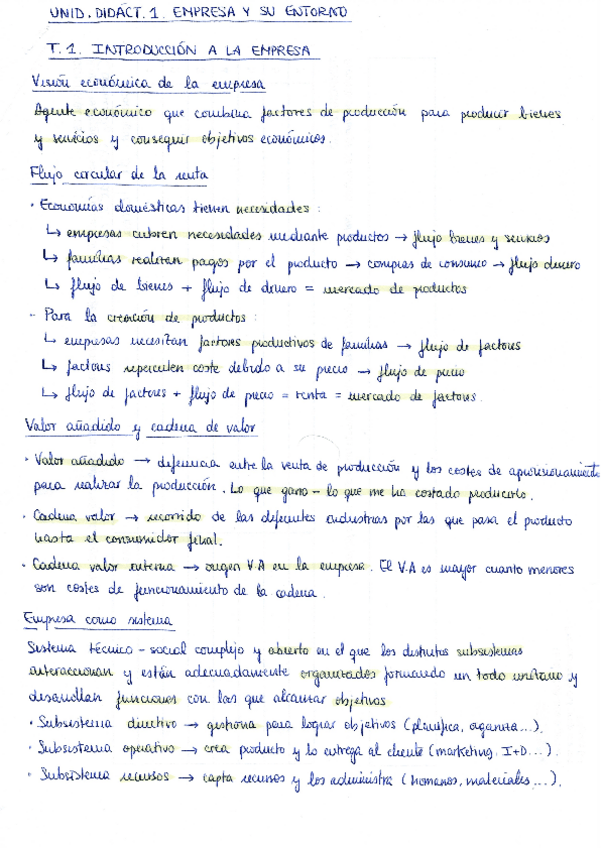 UNID. DIDÁCT. 1. EMPRESA Y SU ENTORNO
T.1. INTRODUCCIÓN A LA EMPRESA
Visión económica de la empresa
Agente económico que combina factores de producción para producir bienes
y servicios y conseguir objetivos económicos.
Flujo circular de la renta
· Economías domésticas tienen necesidades:
↳ empresas cubren necesidades mediante productos → flujo bienes y servicios
↳ familias realizan pagos por el producto → compras de consumo → flujo dinero
↳ flujo de bienes + flujo de dinero = mercado de productos
- Para la creación de productos:
↳ empresas necesitan factores productivos de familias → flujo de factores
↳ factores repercuten coste debido a su precio → flujo de precio
↳ flujo de factores + flujo de precio = renta = mercado de factores.
Valor añadido y cadena de valor
· Valor añadido → diferencia entre la venta de producción y los costes de aprovisionamiento
para realizar la producción. Lo que gano - lo que me ha costado producirlo.
· Cadena valor → recorrido de las diferentes industrias por las que pasa el producto
hasta el consumidor final.
· Cadena valor interna → origen V.A en la empresa. El V.A es mayor cuanto menores
son costes de funcionamiento de la cadena.
Empresa como sistema
Sistema técnico-social complejo y abierto en el que los distintos subsistemas
interaccionan y están adecuadamente organizados formando un todo unitario y
desarrollan funciones con las que alcanzar objetivos
· Subsistema directivo → gestiona para lograr objetivos (planifica, organiza...).
· Subsistema operativo → crea producto y lo entrega al cliente (marketing, I+D...).
· Subsistema recursos → capta recursos y los administra (humanos, materiales...).